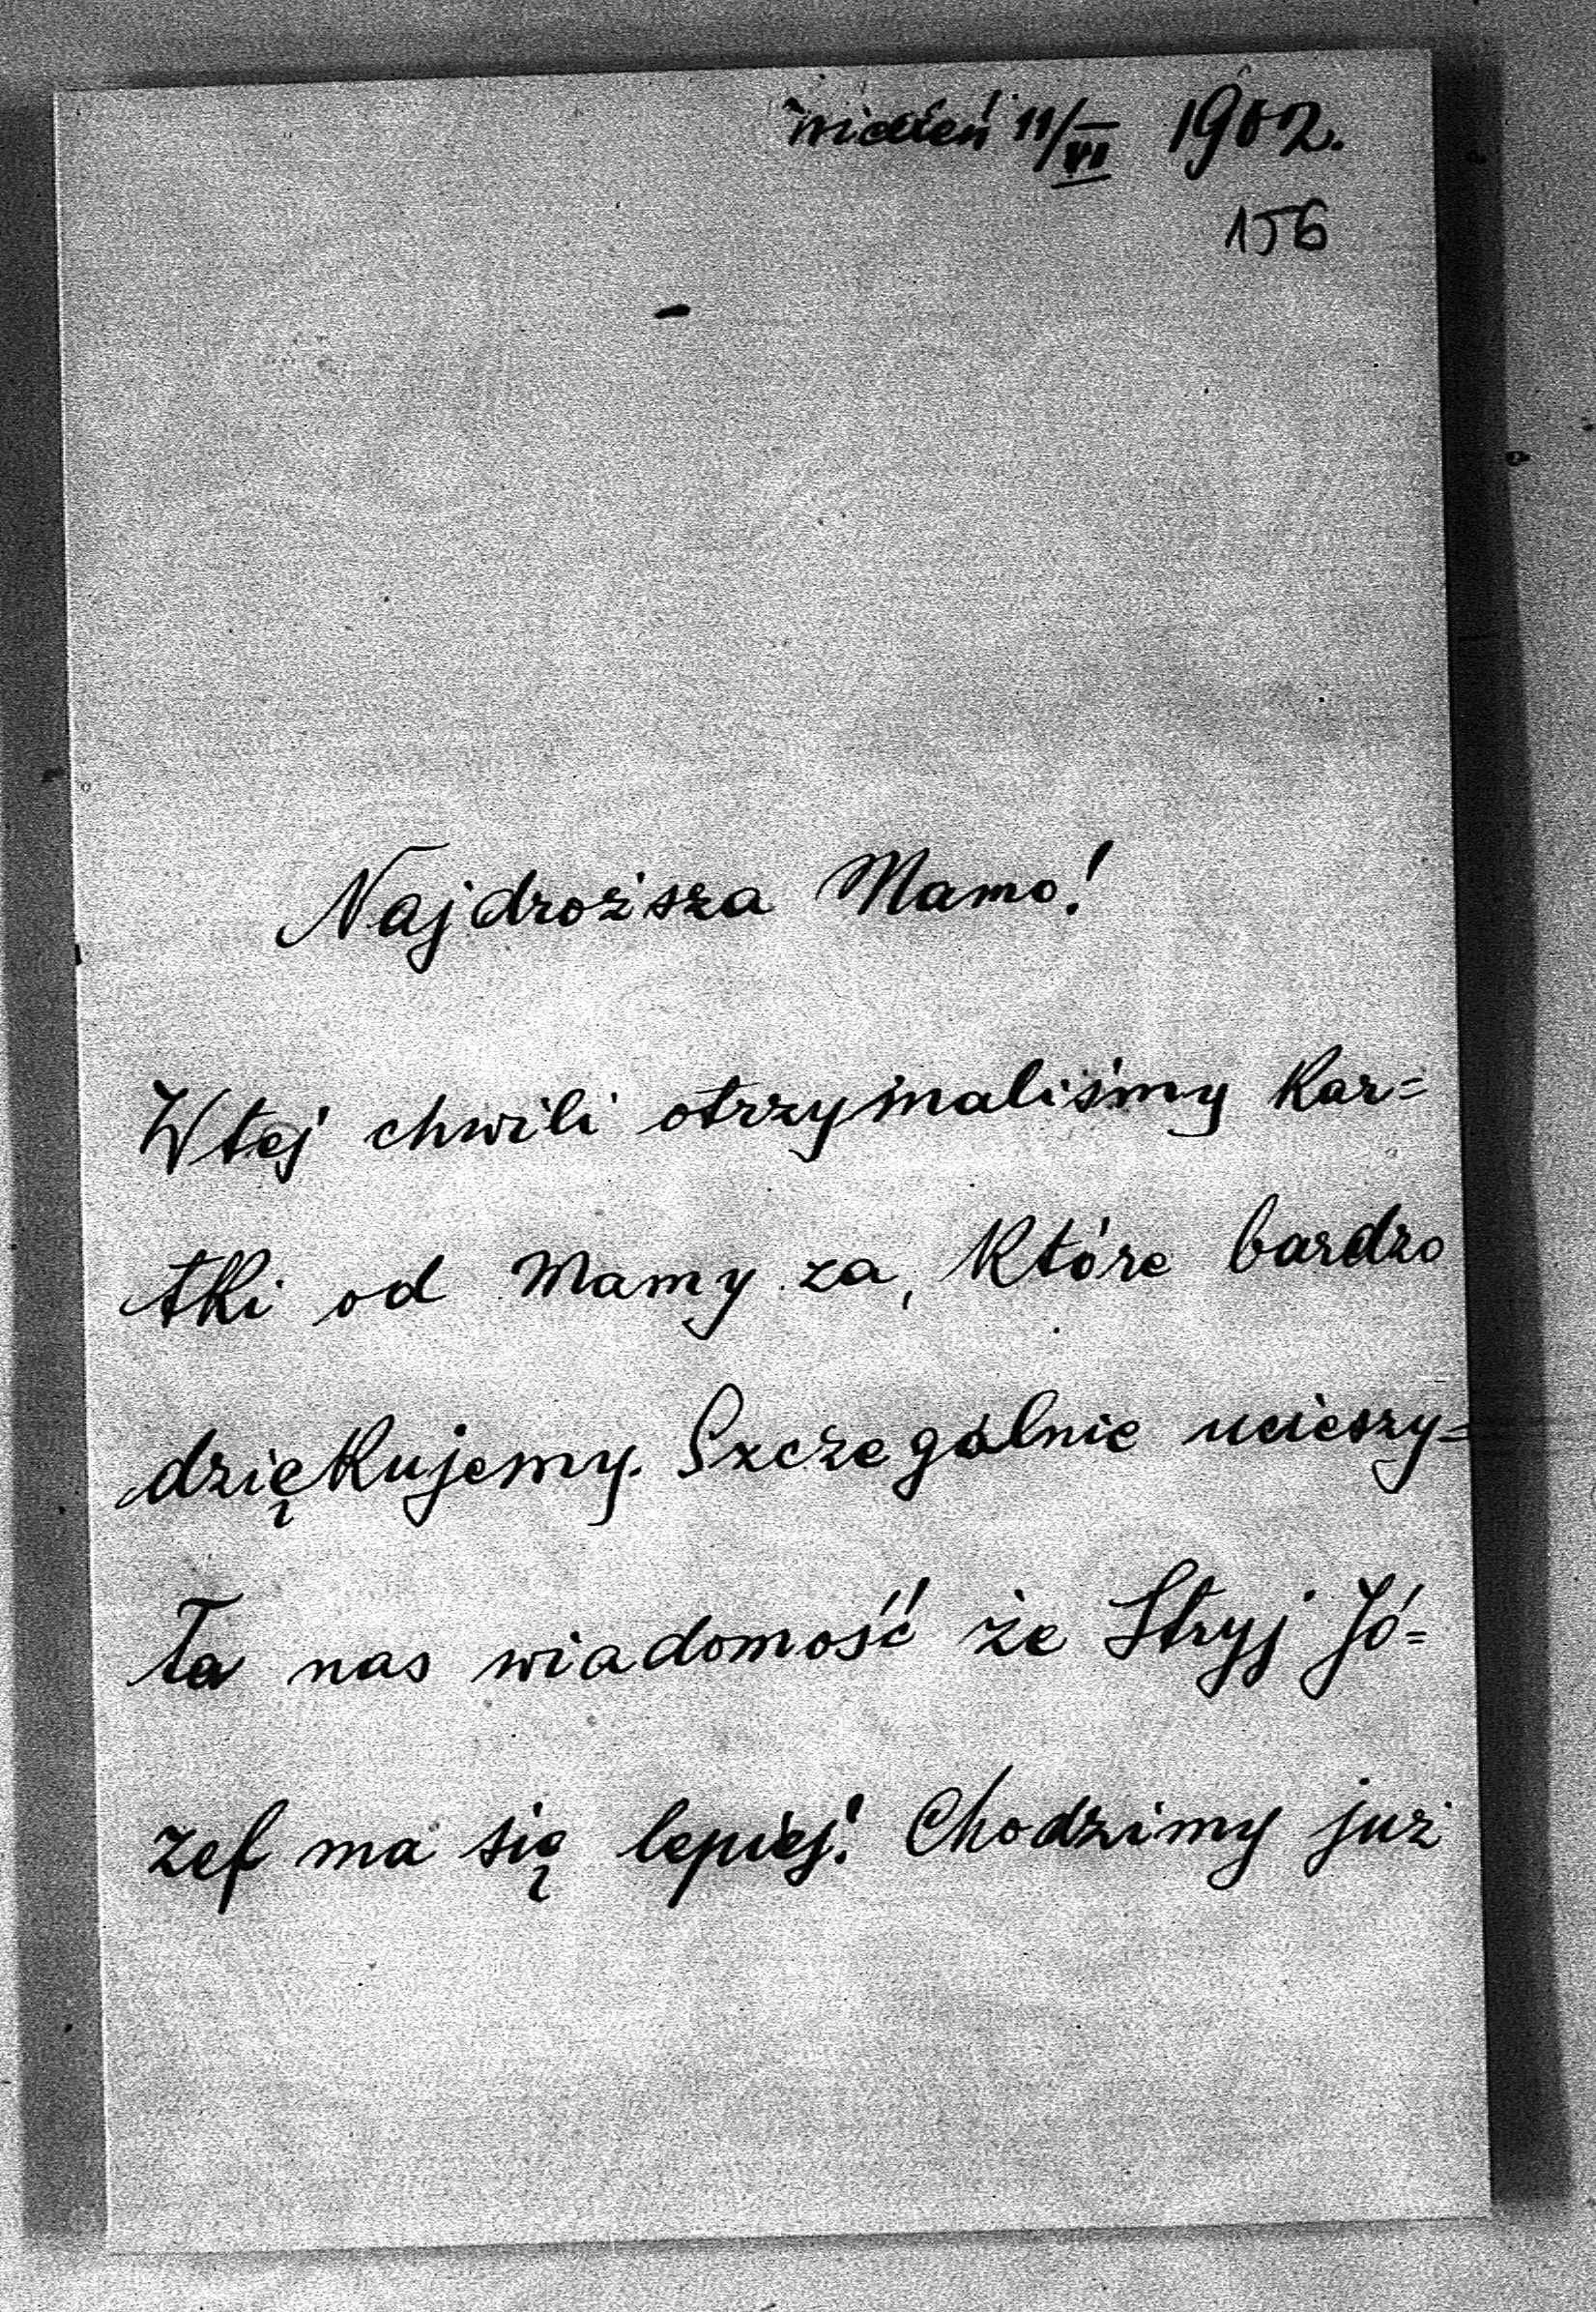 Wiedeń 11/VI 1902.
156
Najdroższa Mamo!
W tej chwili otrzymaliśmy kar=
tki od Mamy za, które bardzo
dziękujemy. Szczególnie ucieszy=
ła nas wiadomość że Stryj Jó=
zef ma się lepiej! Chodzimy już